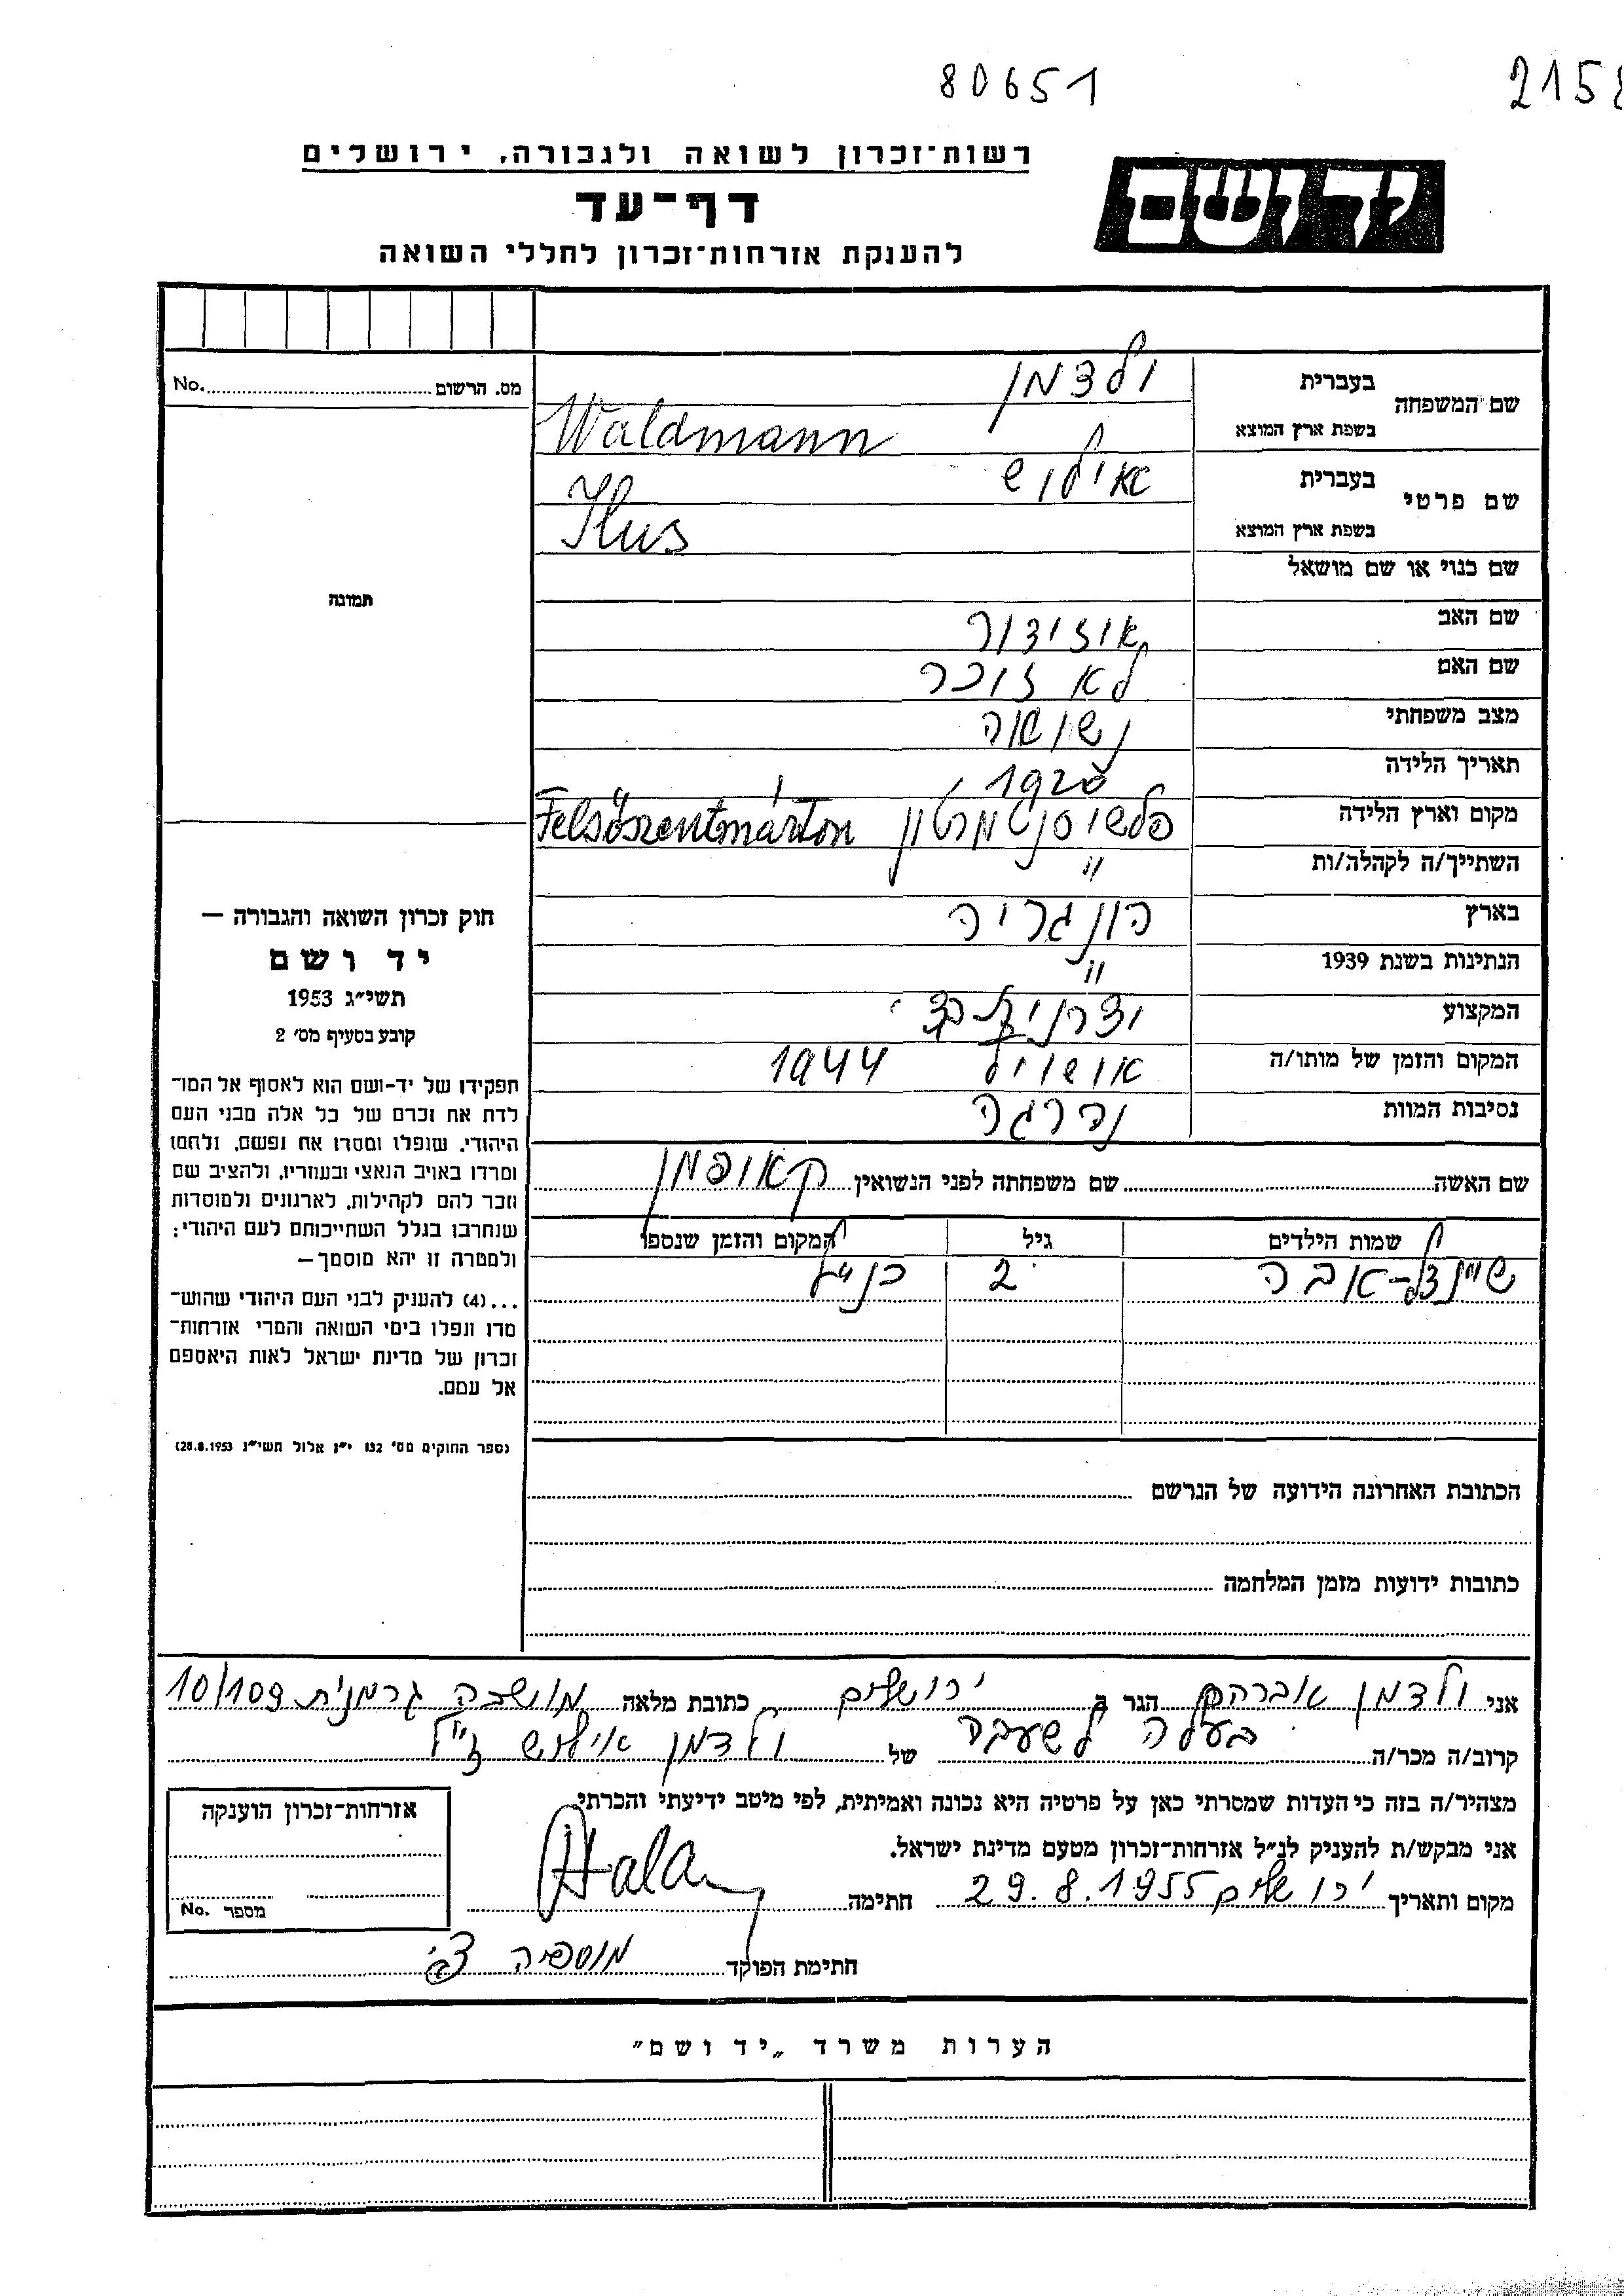 80651
2158
רשות־זכרון לשואה ולגבורה, ירושלים
יד ושם
דף־עד
להענקת אזרחות־זכרון לחללי השואה
מס. הרשום No.
שם המשפחה
בעברית ולדמן
בשפת ארץ המוצא Waldmann
שם פרטי
בעברית אילוש
בשפת ארץ המוצא Ilus
שם כנוי או שם מושאל
שם האב איזידור
שם האם לא זוכר
מצב משפחתי נשואה
תאריך הלידה 1920
מקום וארץ הלידה פלשוסנטמרטון Felsőszentmárton
השתייך/ה לקהלה/ות "
בארץ הונגריה
הנתינות בשנת 1939 "
המקצוע
המקום והזמן של מותו/ה 1944
נסיבות המוות נהרגה
שם האשה שם משפחתה לפני הנשואין קאופמן
שמות הילדים גיל המקום והזמן שנספו
אווה 2 כנ"ל
הכתובת האחרונה הידועה של הנרשם
כתובות ידועות מזמן המלחמה
תמונה
חוק זכרון השואה והגבורה —
יד ושם
תשי״ג 1953
קובע בסעיף מס׳ 2
תפקידו של יד-ושם הוא לאסוף אל המו־
לדת את זכרם של כל אלה מבני העם
היהודי, שנפלו ומסרו את נפשם, נלחמו
ומרדו באויב הנאצי ובעוזריו, ולהציב שם
וזכר להם לקהילות, לארגונים ולמוסדות
שנחרבו בגלל השתייכותם לעם היהודי;
ולמטרה זו יהא מוסמך—
...(4) להעניק לבני העם היהודי שהוש־
מדו ונפלו בימי השואה והמרי אזרחות־
זכרון של מדינת ישראל לאות היאספם
אל עמם.
(ספר החוקים מס׳ 132 י״ז אלול תשי״ג 28.8.1953)
אני ולדמן אברהם הגר ב ירושלים כתובת מלאה מושבה גרמנית 10/109
קרוב/ה מכר/ה בעלה לשעבר של ולדמן אילוש ז"ל
מצהיר/ה בזה כי העדות שמסרתי כאן על פרטיה היא נכונה ואמיתית, לפי מיטב ידיעתי והכרתי.
אני מבקש/ת להעניק לנ״ל אזרחות־זכרון מטעם מדינת ישראל.
מקום ותאריך ירושלים 29.8.1955 חתימה
חתימת הפוקד
אזרחות־זכרון הוענקה
מספר No.
הערות משרד „יד ושם״